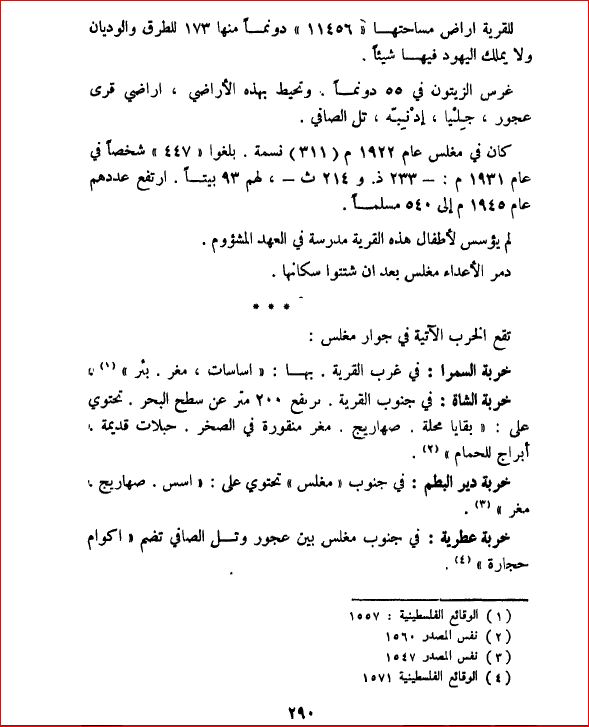 للقرية اراض مساحتهـا « ١١٤٥٦ » دونمـاً منها ١٧٣ للطرق والوديان
ولا يملك اليهود فيهـا شيئاً .
غرس الزيتون في ٥٥ دونمـاً . وتحيط بهذه الأراضي ، اراضي قرى
عجور ، جـِلْيا ، إدْنِبـّه ، تل الصافي .
كان في مغلس عام ١٩٢٢ م (٣١١) نسمة . بلغوا « ٤٤٧ » شخصاً في
عام ١٩٣١ م : – ٢٣٣ ذ. و ٢١٤ ث – ، لهم ٩٣ بيتـاً . ارتفع عددهم
عام ١٩٤٥ م إلى ٥٤٠ مسلمـاً .
لم يؤسس لأطفال هذه القرية مدرسة في العهد المشؤوم .
دمر الأعداء مغلس بعد ان شتتوا سكانها .
* * *
تقع الخرب الآتية في جوار مغلس :
خربة السمرا : في غرب القرية . بهـا : « اساسات ، مغر . بئر » (١) ،
خربة الشاة : في جنوب القرية . ترتفع ٢٠٠ متر عن سطح البحر . تحتوي
على : « بقايا محلة . صهاريج . مغر منقورة في الصخر . حبلات قديمة ،
أبراج للحمام » (٢) .
خربة دير البطم : في جنوب « مغلس » تحتوي على : « اسس . صهاريج ،
مغر » (٣) .
خربة عطرية : في جنوب مغلس بين عجور وتـل الصافي تضم « اكوام
حجارة » (٤) .
(١) الوقائع الفلسطينية : ١٥٥٧
(٢) نفس المصدر ١٥٦٠
(٣) نفس المصدر ١٥٤٧
(٤) الوقائع الفلسطينية ١٥٧١
٢٩٠